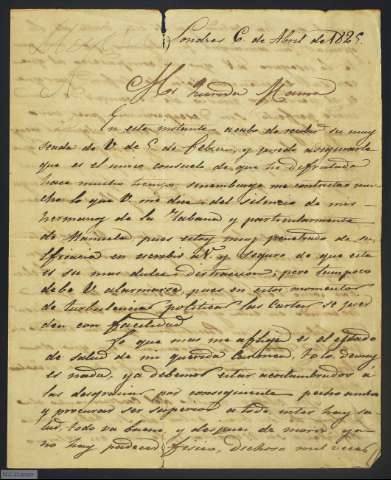 Londres 6 de Abril de 1825.
Mi querida Mama
En este instante acabo de recibir su muy
de V. de 6 de Febro, y puedo asegurarle
que es el unico consuelo de que he disfrutado
hace mucho tiempo, sinembargo me contrista mu
cho lo que V. me dice del silencio de mis
hermanos de la Habana y particularmente
de Manuela pues estoy muy penetrado de su
eficacia en escribir a V. y seguro de que esta
es su mas dulce distraccion; pero tampoco
debe V. alarmarse pues en estos momentos
de turbulencias politicas las Cartas se pier
den con facilidad
Lo que mas me aflije es el estado
de salud de mi querida todo lo demas
es nada, ya debemos estar acostumbrados á
las desgracias por consiguiente pecho ancho
y procurar ser superior a todo, interin hay sa
lud, todo va bueno, y despues de muerto ya
no hay padecer fisico, dichoso mil veces